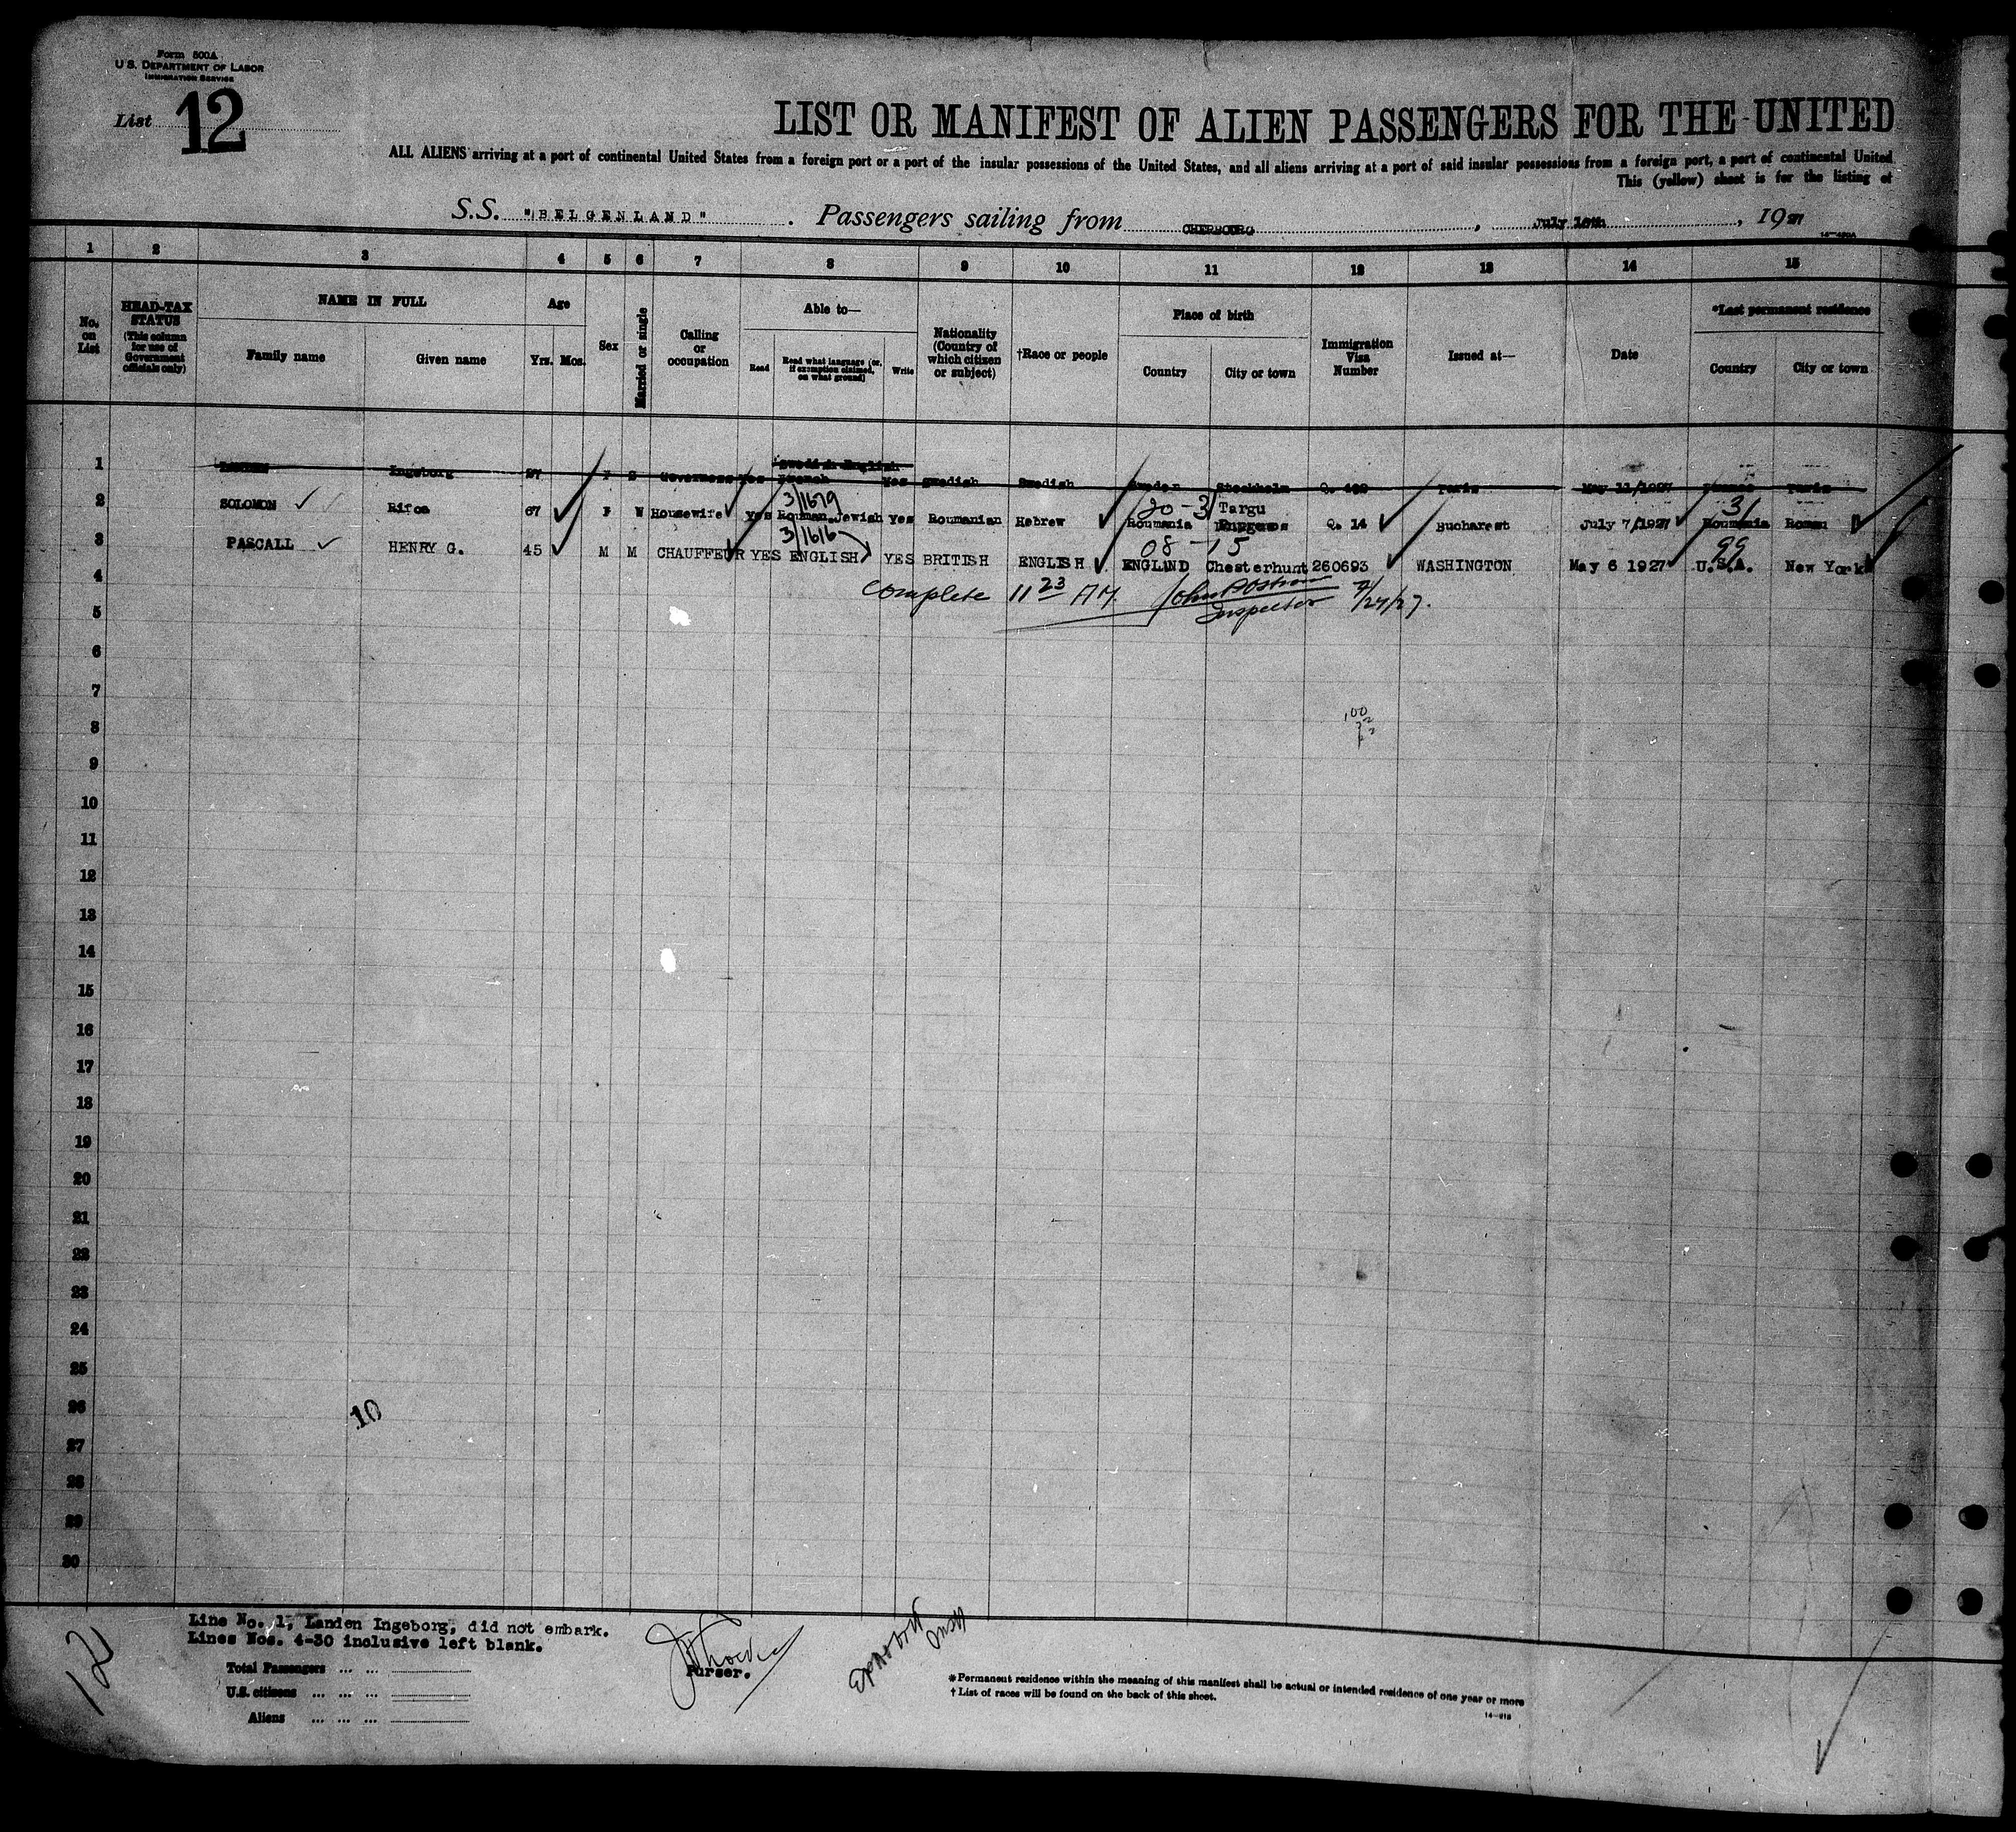 Form 500A
U.S. DEPARTMENT OF LABOR
IMMIGRATION SERVICE
List 12
LIST OR MANIFEST OF ALIEN PASSENGERS FOR THE UNITED
ALL ALIENS arriving at a port of continental United States from a foreign port or a port of the insular possessions of the United States, and all aliens arriving at a port of said insular possessions from a foreign port, a port of continental United
This (yellow) sheet is for the listing of
S.S. "BELGENLAND". Passengers sailing from CHERBOURG, July 18th, 1927
1 2 3 4 5 6 7 8 9 10 11 12 13 14 15
No. on List
HEAD-TAX STATUS (This column for use of Government officials only)
NAME IN FULL
Family name Given name
Age
Yrs. Mos.
Sex
Married or single
Calling or occupation
Able to—
Read Read what language (or, if exemption claimed, on what ground) Write
Nationality (Country of which citizen or subject)
†Race or people
Place of birth
Country City or town
Immigration Visa Number
Issued at—
Date
*Last permanent residence
Country City or town
1 Ingeborg 27 F S Governess Yes Swedish English French Yes Swedish Swedish Sweden Stockholm Paris May 11/1927 Paris
3/1679 20-3 Targu 31
2 SOLOMON Rifca 67 F W Housewife Yes Rouman. Jewish Yes Roumanian Hebrew Roumania Q. 14 Bucharest July 7/1927 Roumania Roman
3/1616 08-15 99
3 PASCALL HENRY G. 45 M M CHAUFFEUR YES ENGLISH YES BRITISH ENGLISH ENGLAND Chesterhunt 260693 WASHINGTON May 6 1927 U.S.A. New York
4 Complete 11 23 AM. Inspector 7/27/27.
5
6
7
8 100
9
10
11
12
13
14
15
16
17
18
19
20
21
22
23
24
25
26 10
27
28
29
30
Line No. 1, Landen Ingeborg, did not embark.
Lines Nos. 4-30 inclusive left blank.
12
Total Passengers ... ...
U.S. citizens ... ... ...
Aliens ... ... ...
Purser.
*Permanent residence within the meaning of this manifest shall be actual or intended residence of one year or more
†List of races will be found on the back of this sheet.